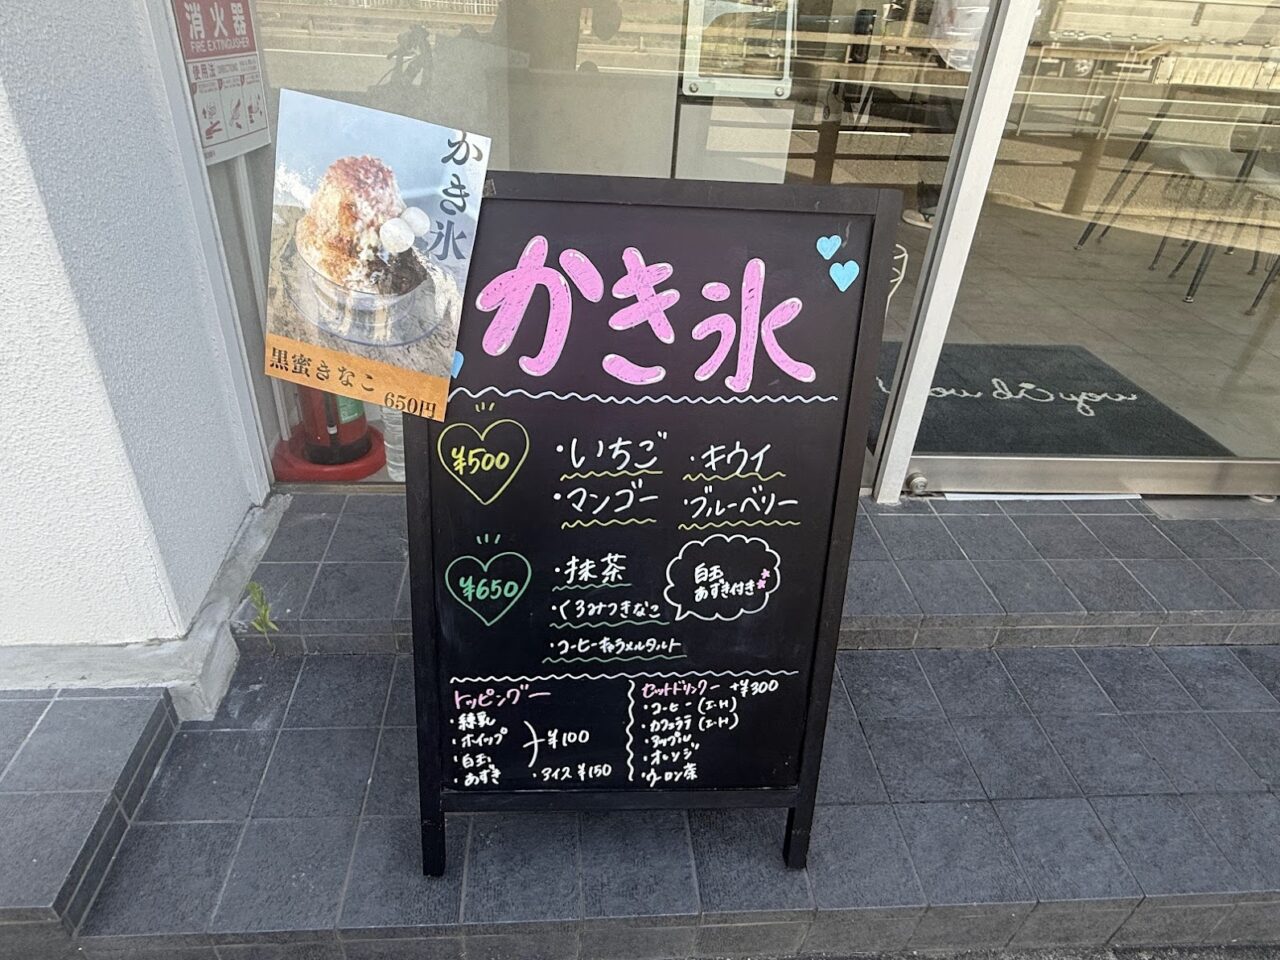 消火器
FIRE EXTINGUISHER
使用法
DIRECTIONS
かき氷
黒蜜きなこ
650円
かき氷
¥500
・いちご
・キウイ
・マンゴー
・ブルーベリー
¥650
・抹茶
・くろみつきなこ
・コーヒーキャラメルタルト
白玉
あずき付き
トッピングー
・練乳
・ホイップ
・白玉
・あずき
+¥100
・アイス ¥150
セットドリンクー +¥300
・コーヒー (I・H)
・カフェラテ (I・H)
・アップル
・オレンジ
・ウーロン茶